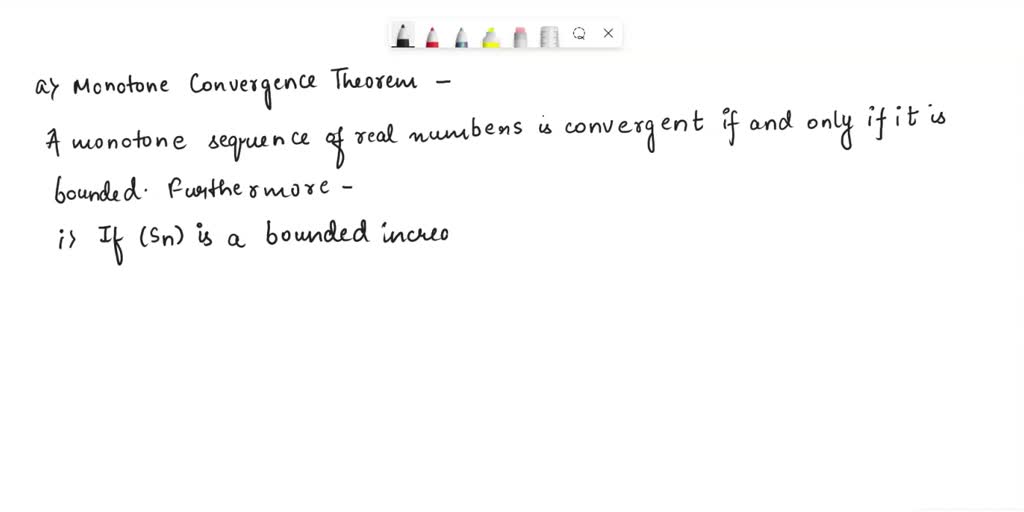 a) Monotone Convergence Theorem -
A monotone sequence of real numbers is convergent if and only if it is
bounded. Furthermore -
i) If (Sn) is a bounded increa